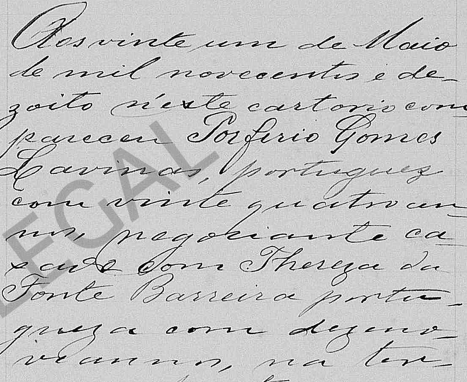 Aos vinte um de Maio
de mil novecentos e de-
zoito n'este cartorio com
pareceu Porferio Gomes
Lavinas, portuguez
com vinte quatro an-
nos, negociante ca-
sado com Thereza da
Fonte Barreira portu-
gueza com dezeno-
ve annos, na ter-
EGAL